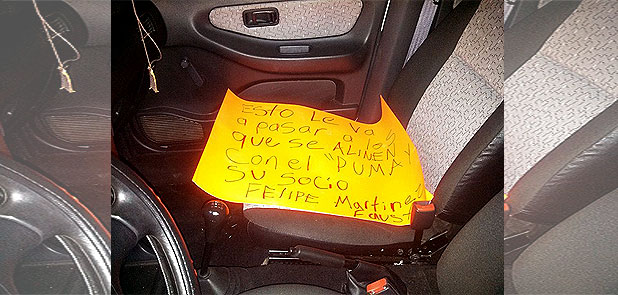 ESTO Le VA
a pasar a los
que se ALINEN Y
Con el "PUMA
SU SOCIO
FELIPE Martinez
FAUST